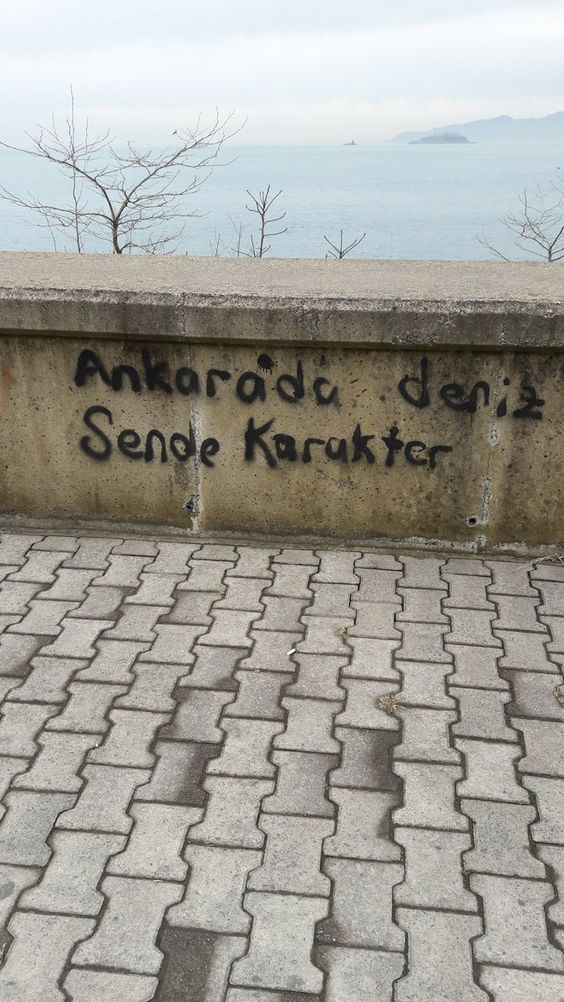 Ankara'da deniz
Sende Karakter